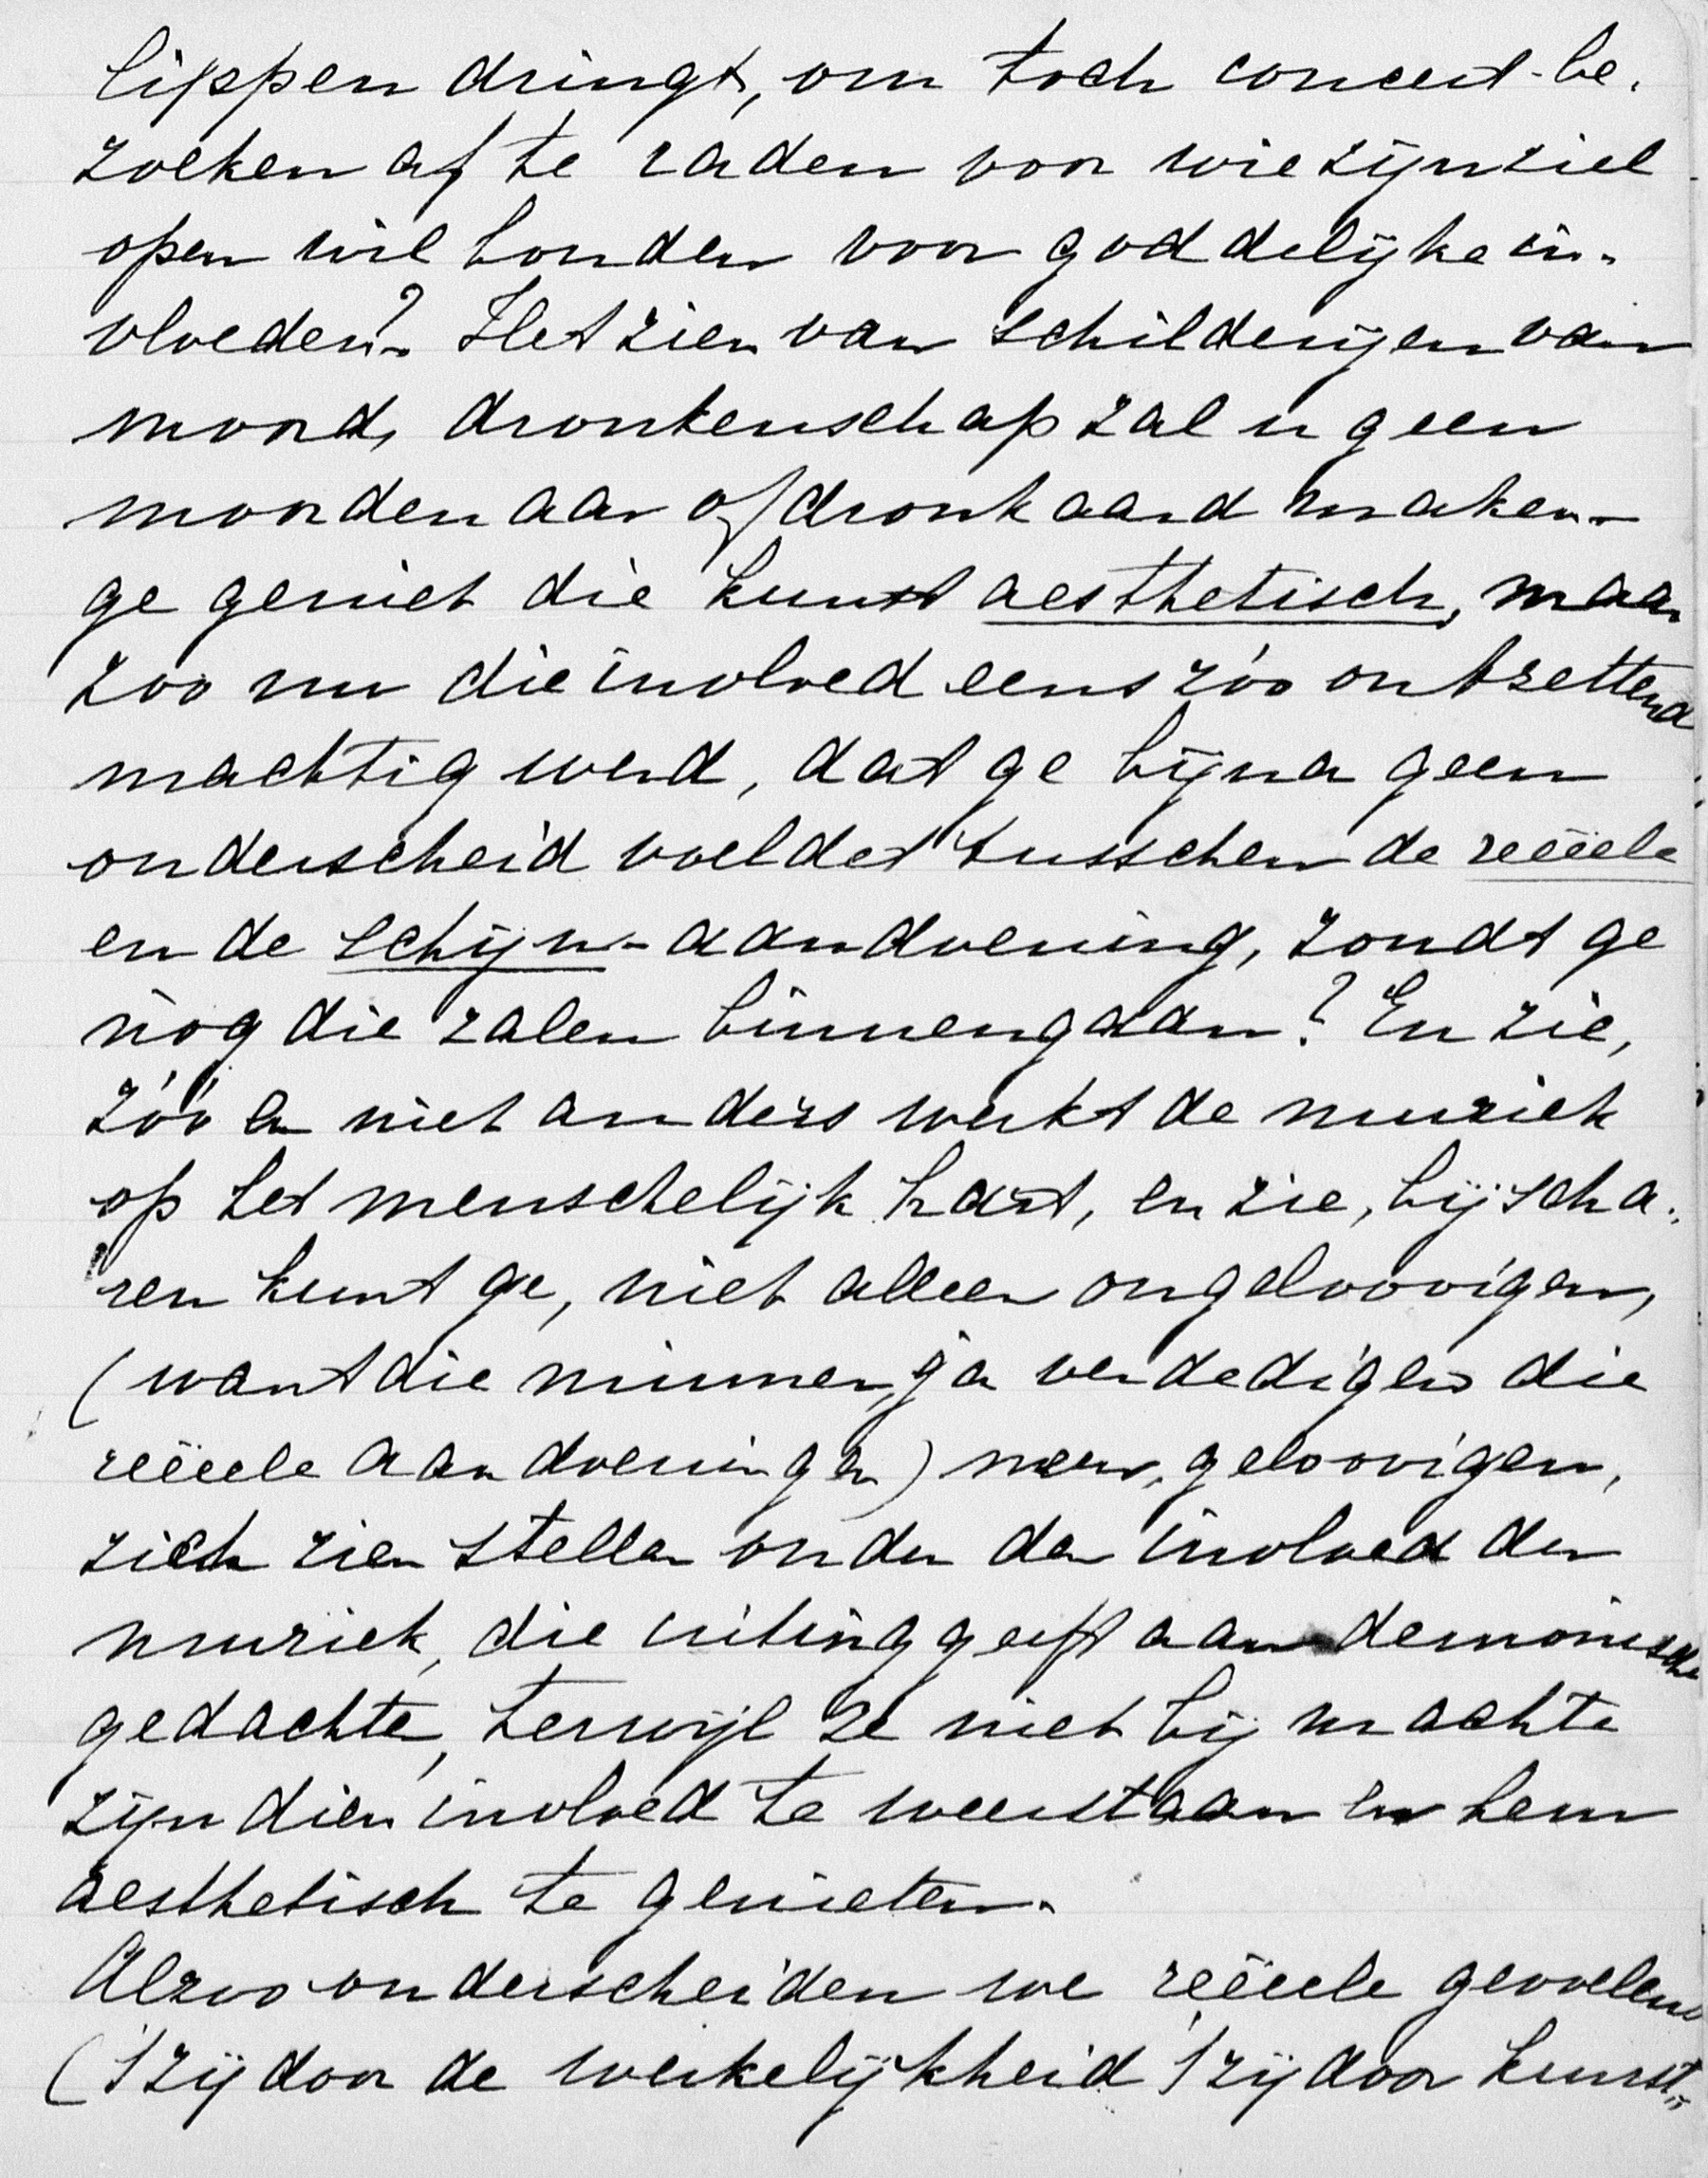 lippen dringt, om toch concert-be-
zoeken af te raden voor wie zijn ziel
open wil houden voor goddelijke in-
vloeden? Het zien van schilderijen van
moord, dronkenschap zal u geen
moordenaar of dronkaard maken-
ge geniet die kunst aesthetisch, maar
zoo nu die invloed eens zóó ontzettend
machtig werd, dat ge bijna geen
onderscheid voeldet tusschen de reëele
en de schijn-aandoening, zoudt ge
nòg die zalen binnengaan? En zie,
zóó en niet anders werkt de muziek
op het menschelijk hart, en zie, bij scha-
ren kunt ge, niet alleen ongeloovigen,
(want die minnen, ja verdedigen die
reëele aandoeningen) neen, geloovigen,
zich zien stellen onder den invloed der
muziek, die uiting geeft aan demonische
gedachte, terwijl ze niet bij machte
zijn dien invloed te weerstaan en hem
aesthetisch te genieten.
Alzoo onderscheiden we reëele gevoelens
('t zij door de werkelijkheid 't zij door kunst-